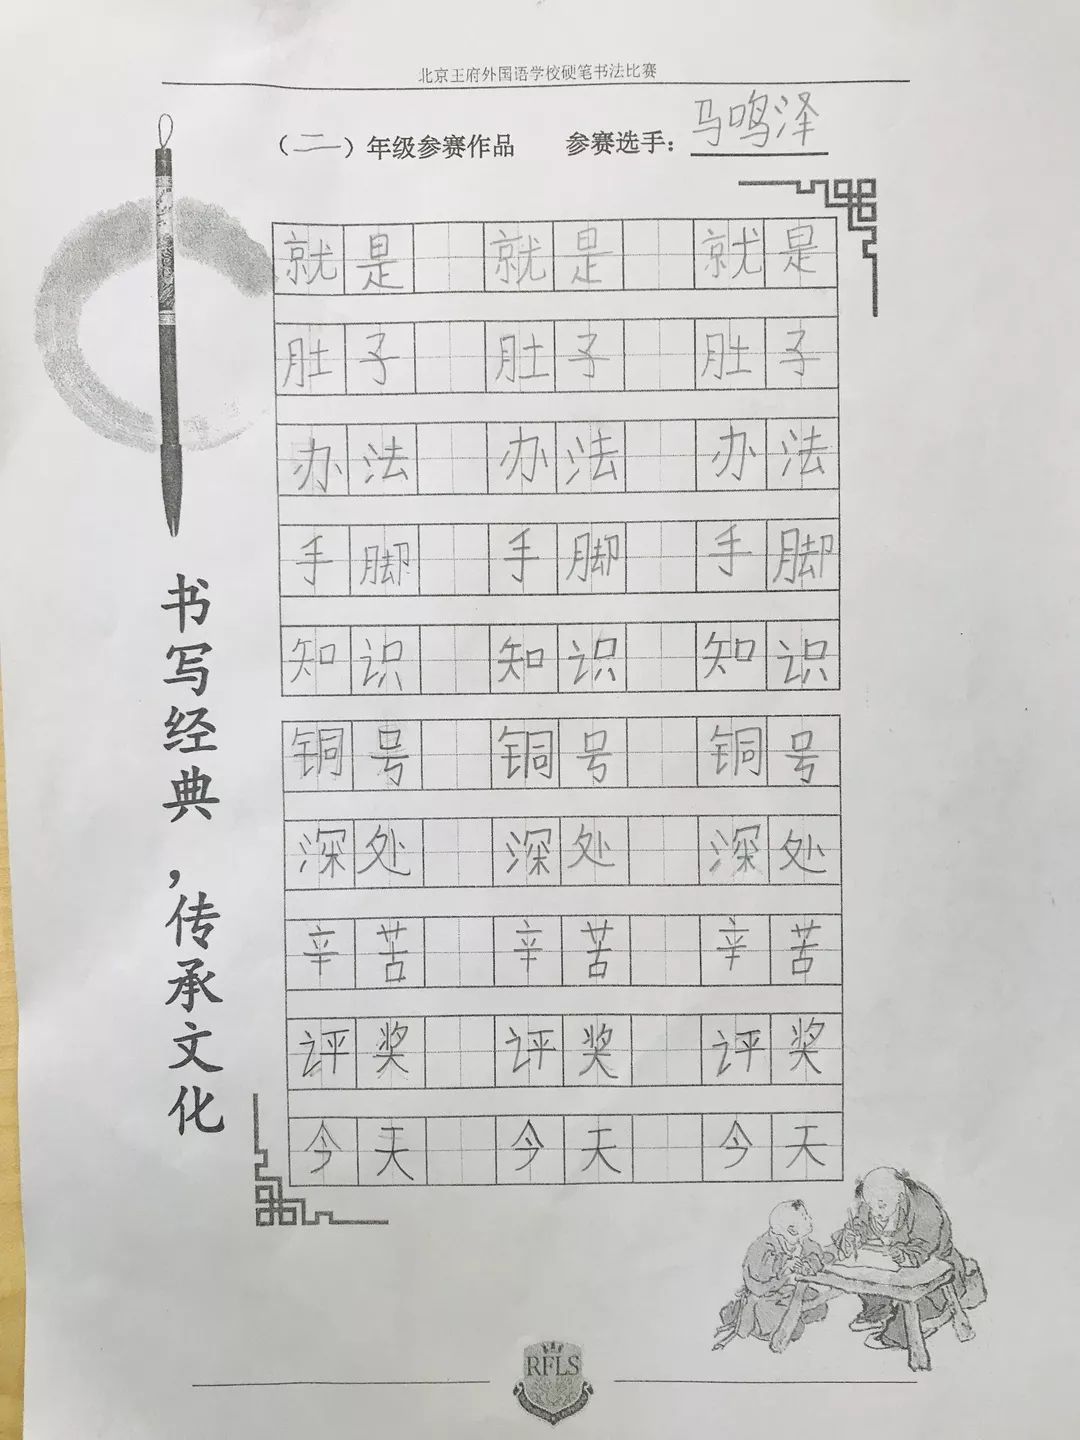 北京王府外国语学校硬笔书法比赛
（二）年级参赛作品 参赛选手：马鸣泽
就是 就是 就是
肚子 肚子 肚子
办法 办法 办法
手脚 手脚 手脚
知识 知识 知识
铜号 铜号 铜号
深处 深处 深处
辛苦 辛苦 辛苦
评奖 评奖 评奖
今天 今天 今天
书写经典，传承文化
RFLS